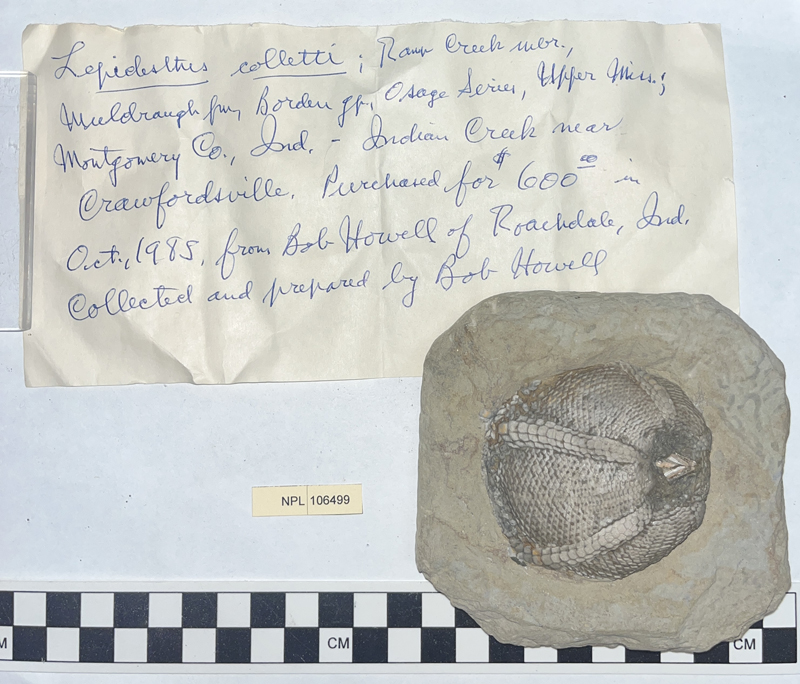 Lepidesthes colletti; Ramp Creek mbr.,
Muldraugh fm, Borden gp., Osage Series, Upper Miss.;
Montgomery Co., Ind. - Indian Creek near
Crawfordsville. Purchased for $600.00 in
Oct., 1985, from Bob Howell of Roachdale, Ind.
Collected and prepared by Bob Howell
NPL 106499
M
CM
CM